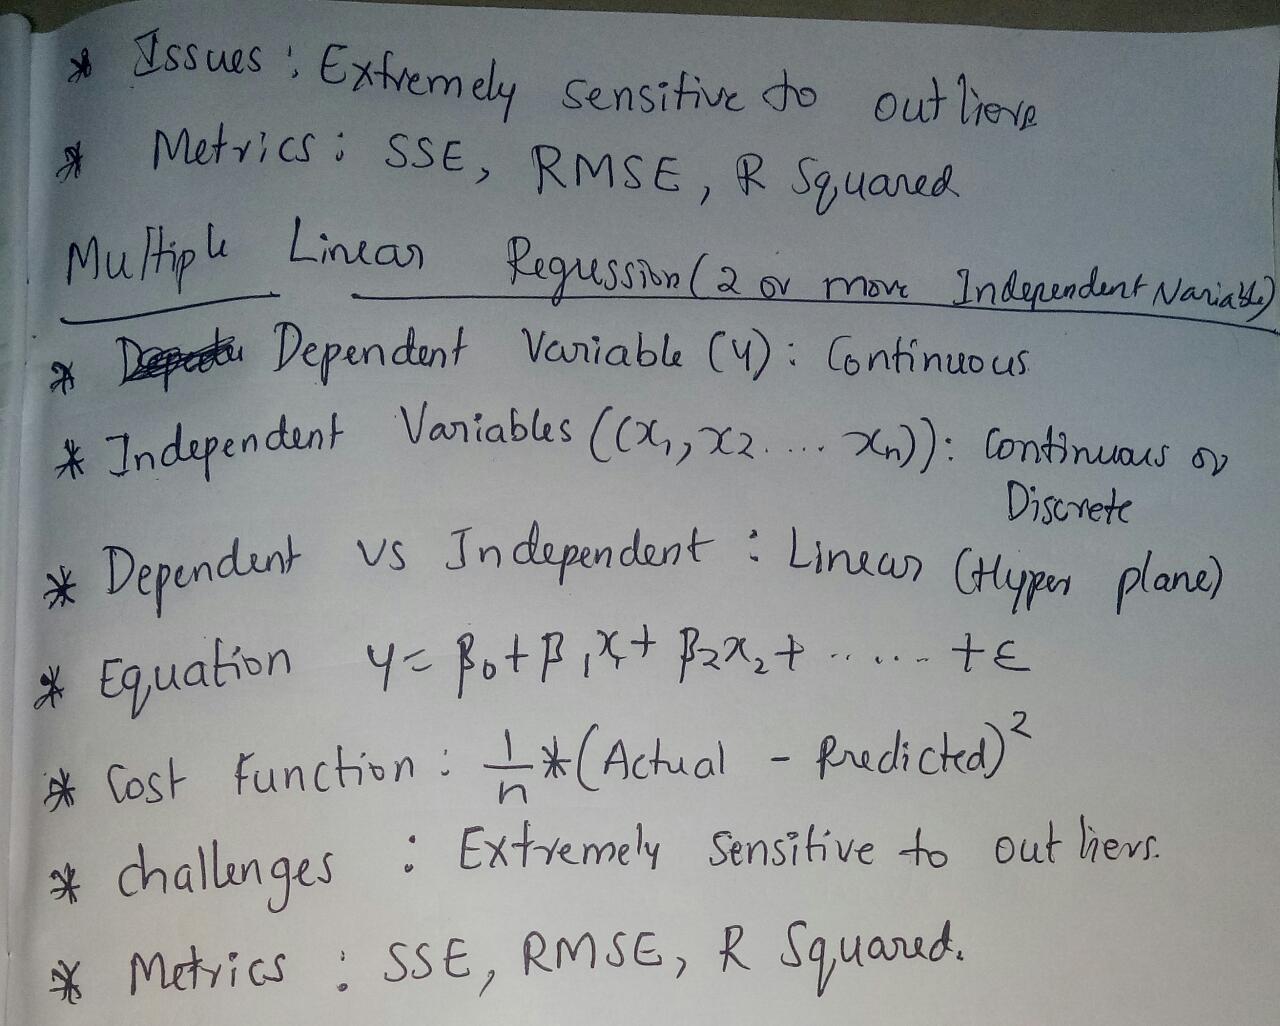 * Issues : Extremely sensitive to outliers
* Metrics : SSE, RMSE, R Squared
Multiple Linear Regression (2 or more Independent Variable)
* Dependent Variable (y) : Continuous
* Independent Variables ((x₁, x₂ .... xₙ)) : Continuous or
Discrete
* Dependent vs Independent : Linear (Hyper plane)
* Equation y = β₀ + β₁x₁ + β₂x₂ + ...... + ε
* Cost Function : 1/n * (Actual - Predicted)²
* challenges : Extremely Sensitive to outliers.
* Metrics : SSE, RMSE, R Squared.